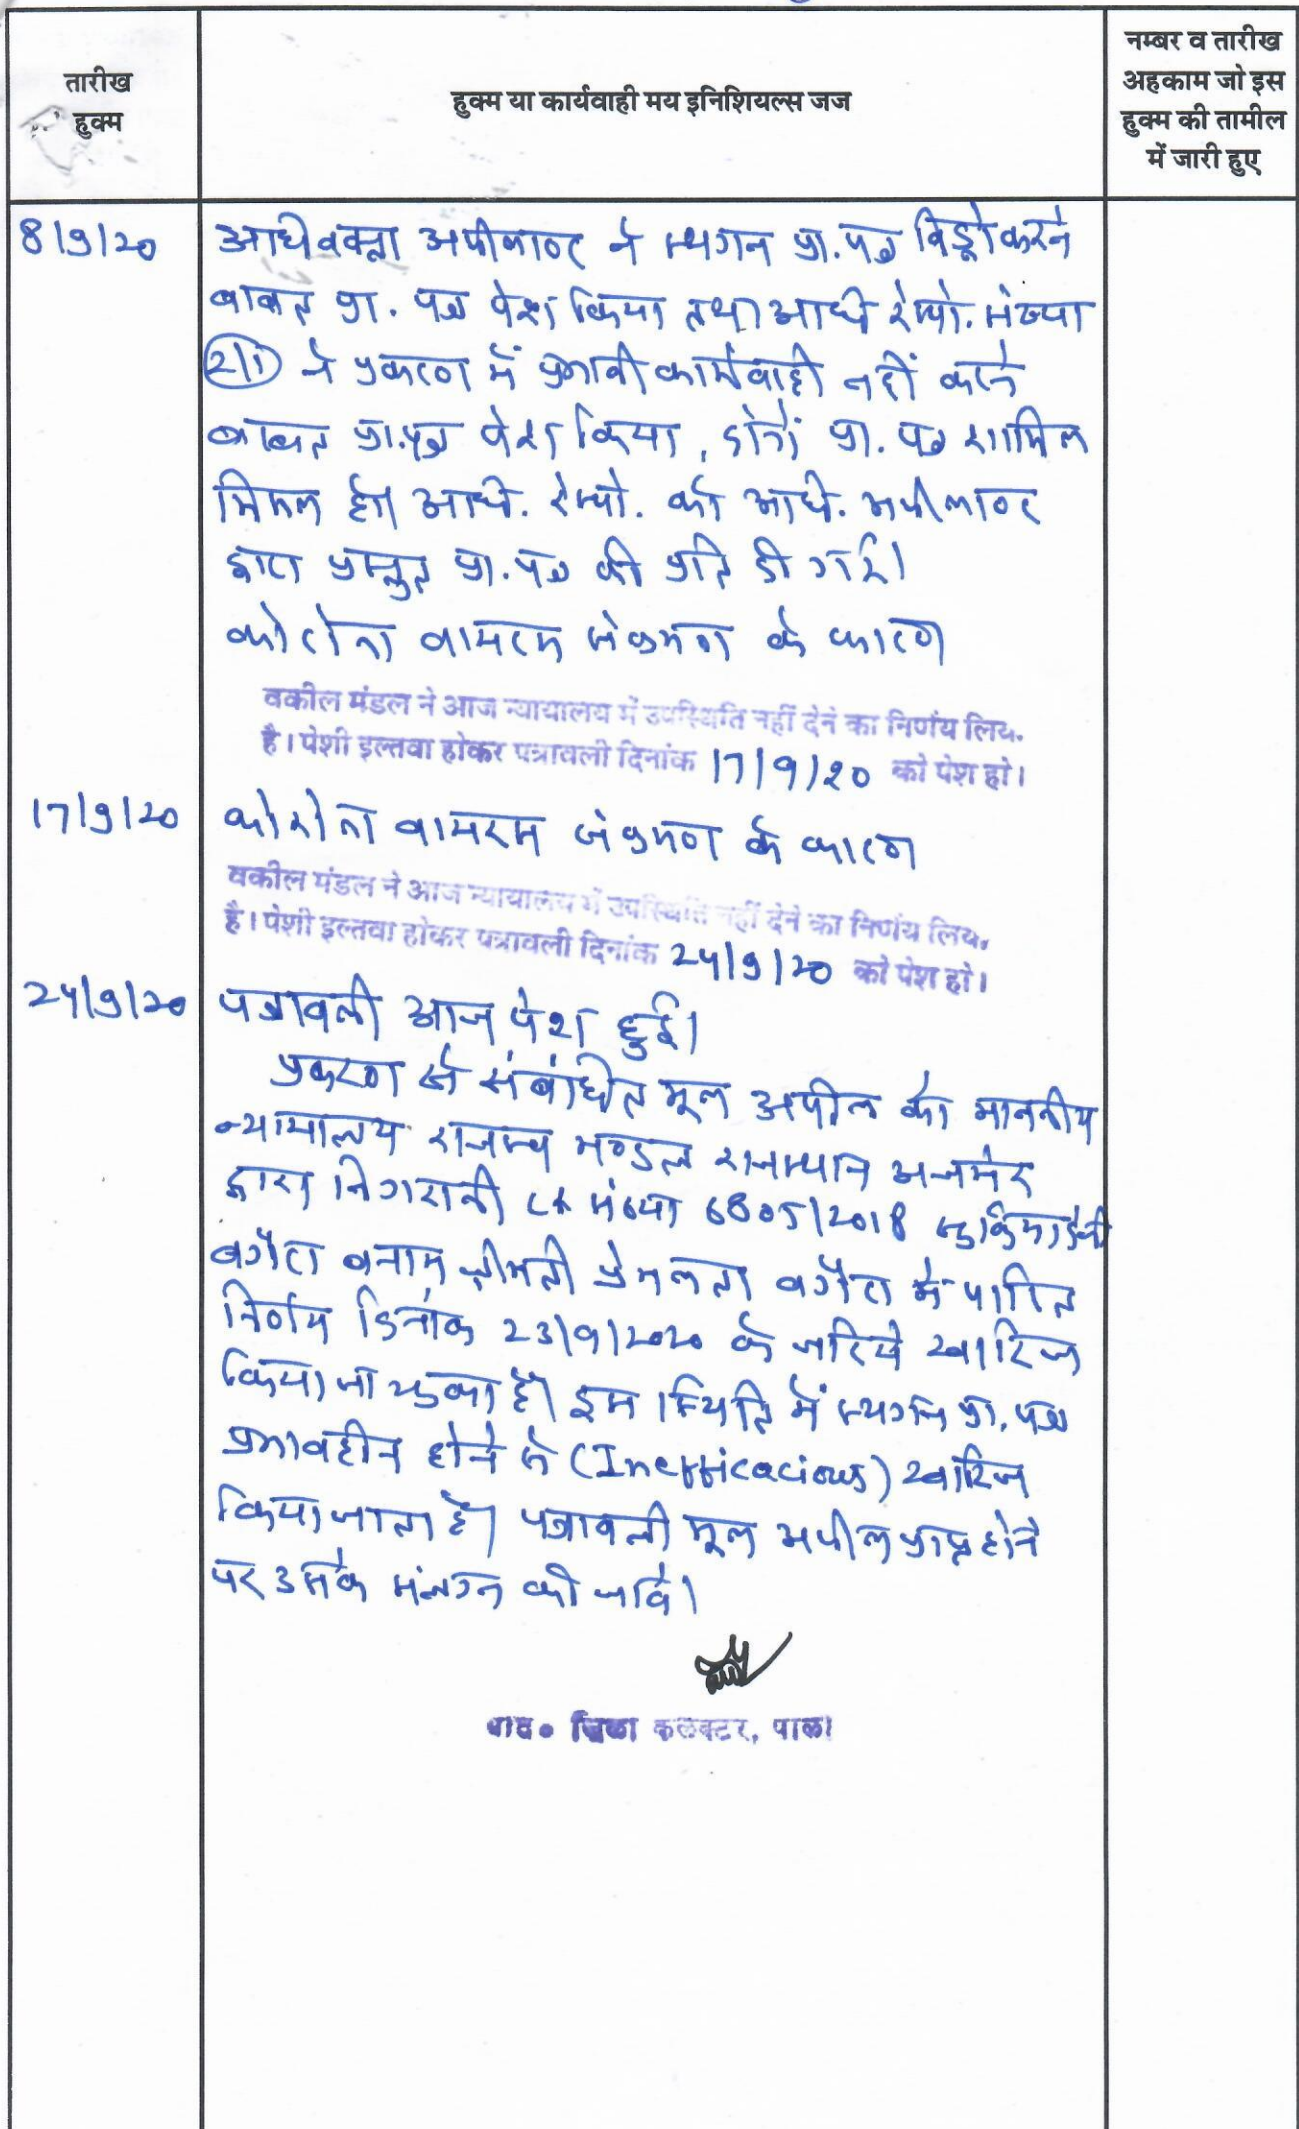 तारीख
हुक्म
हुक्म या कार्यवाही मय इनिशियल्स जज
नम्बर व तारीख
अहकाम जो इस
हुक्म की तामील
में जारी हुए
8/9/20
अधिवक्ता अपीलाण्ट ने स्थगन प्रा.पत्र विड्रो करने
बाबत प्रा. पत्र पेश किया तथा अधि रेस्पो. संख्या
2/1 ने प्रकरण में प्रभावी कार्यवाही नहीं करने
बाबत प्रा.पत्र पेश किया, दोनों प्रा. पत्र शामिल
मिसल हो। अधि. रेस्पो. को अधि. अपीलाण्ट
द्वारा प्रस्तुत प्रा.पत्र की प्रति दी गई।
कोरोना वायरस संक्रमण के कारण
वकील मंडल ने आज न्यायालय में उपस्थिति नहीं देने का निर्णय लिय
है। पेशी इल्तवा होकर पत्रावली दिनांक 17/9/20 को पेश हो।
17/9/20
कोरोना वायरस संक्रमण के कारण
वकील मंडल ने आज न्यायालय में उपस्थिति नहीं देने का निर्णय लिय
है। पेशी इल्तवा होकर पत्रावली दिनांक 24/9/20 को पेश हो।
24/9/20
पत्रावली आज पेश हुई।
प्रकरण से संबंधित मूल अपील को माननीय
न्यायालय राजस्व मण्डल राजस्थान अजमेर
द्वारा निगरानी संख्या 6805/2018
वगैरा बनाम श्रीमती प्रेमलता वगैरा में पारित
निर्णय दिनांक 23/9/2020 के जरिये खारिज
किया जा चुका है। इस स्थिति में स्थगन प्रा. पत्र
प्रभावहीन होने से (Inefficacious) खारिज
किया जाता है। पत्रावली मूल अपील प्राप्त होने
पर उसके संलग्न की जावे।
जिला कलक्टर, पाली